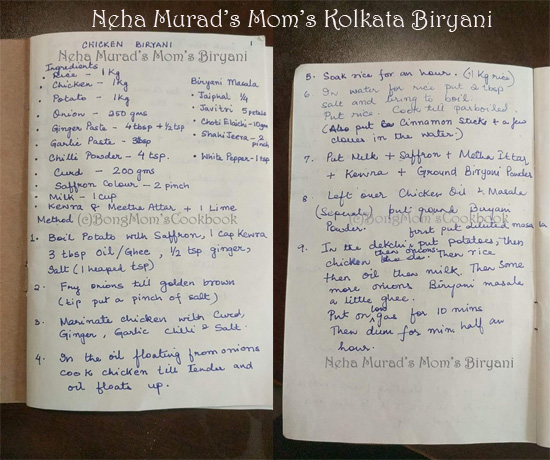 Neha Murad's Mom's Kolkata Biryani
CHICKEN BIRYANI 1
Neha Murad's Mom's Biryani
Ingredients
• Rice – 1 Kg
• Chicken – 1 Kg
• Potato – 1 Kg
• Onion – 250 gms
• Ginger Paste – 4 tbsp + ½ tsp
• Garlic Paste – 3 tbsp
• Chilli Powder – 4 tsp.
• Curd – 200 gms
• Saffron Colour – 2 pinch
• Milk – 1 Cup
• Kewra & Meetha Attar + 1 Lime
Biryani Masala
• Jaiphal ¼
• Javitri 5 petals
• Choti Elaichi – 10 gms
• Shahi Jeera – 2 pinch
• White Pepper – 1 tsp
Method (c)BongMom'sCookbook
1. Boil Potato with Saffron, 1 Cap Kewra
3 tbsp Oil/Ghee, ½ tsp ginger,
Salt (1 heaped tsp)
2. Fry onions till golden brown
(tip put a pinch of salt)
3. Marinate chicken with Curd,
Ginger, Garlic Chilli & Salt.
4. In the oil floating from onions
cook chicken till Tender and
oil floats up.
Neha Murad's Mom's Biryani
5. Soak rice for an hour. (1 Kg rice)
6. In water for rice put 2 tbsp
salt and bring to boil.
Put rice. Cook till parboiled.
(Also put Cinnamon Sticks & a few
cloves in the water.)
7. Put Milk + Saffron + Metha Ittar
+ Kewra + Ground Biryani Powder
(c)BongMom'sCookbook
8. Left over Chicken Oil & Masala
(Seperate) put ground Biryani
Powder. first put diluted masala
9. In the dekchi, put potatoes, then
chicken then onions. Then rice
then oil then milk. Then some
more onions Biryani masala
a little ghee.
Put on low gas for 10 mins
Then dum for min half an
hour.
Neha Murad's Mom's Biryani